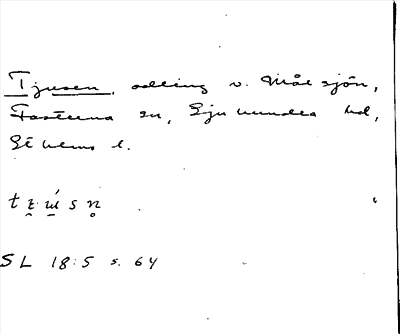 Tjusen, odling v. Målsjön,
Fasterna sn, Sjuhundra hd,
Sthlms l.
t z ɯ́ s n̥
SL 18:5 s. 64